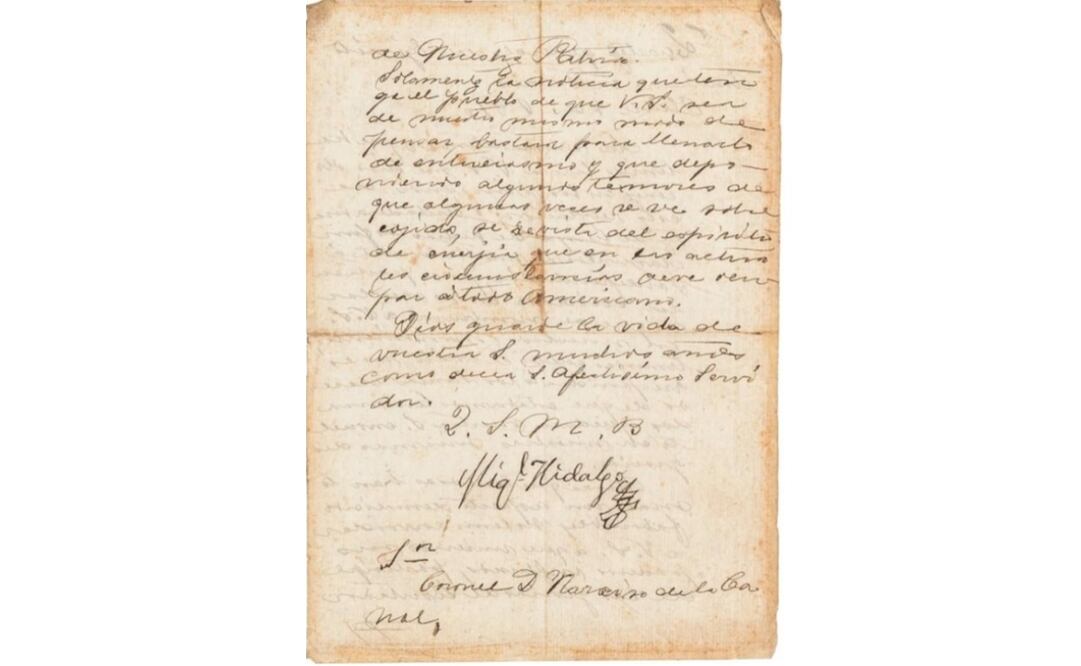 de Nuestra Patria.
Solamente la noticia que ten
ga el pueblo de que V.S. sea
de nuestro mismo modo de
pensar, bastara para llenarlo
de entuciasmo y que depo-
niendo algunos temores de
que algunas veces se ve sobre
cojido, se revista del espiritu
de energia que en las actua
les circunstancias deve ocu
par á todo Americano.
Dios guarde la vida de
vuestra S. muchos años
como decea S. Afectisimo Servi
dor.
Q. S. M. B
Migl. Hidalgo
Sor
Coronel D Narciso de la Ca
nal,